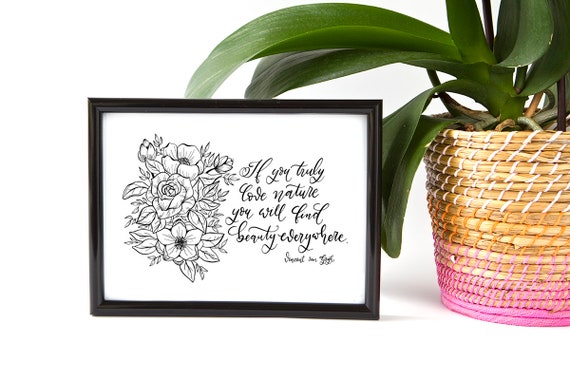 If you truly
love nature
you will find
beauty everywhere.
Vincent van Gogh